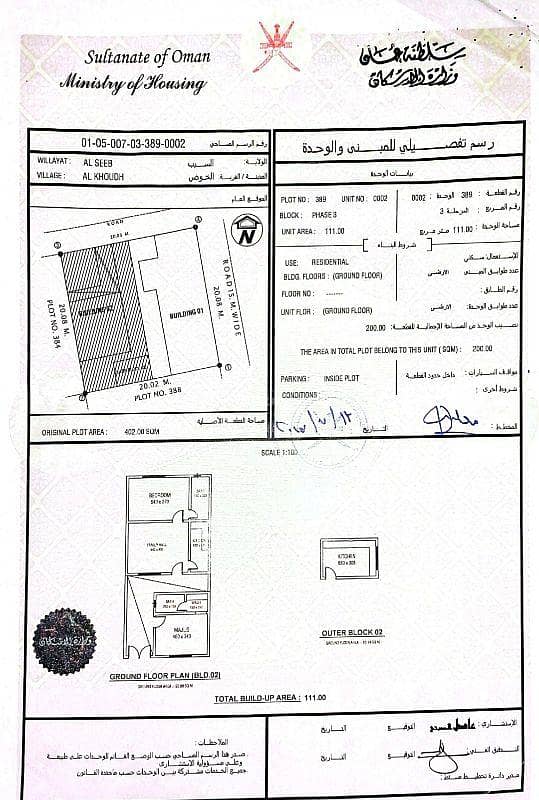 Sultanate of Oman
Ministry of Housing
سلطنة عمان
وزارة الإسكان
01-05-007-03-389-0002 رقم الرسم المساحي
WILLAYAT : AL SEEB السيب الولاية:
VILLAGE : AL KHOUDH الخوض المدينة / القرية:
الموقع العام
ROAD
20.02 M.
N
20.08 M.
PLOT NO. 384
BUILDING 02
BUILDING 01
20.08 M.
ROAD 15 M. WIDE
20.02 M.
PLOT NO. 388
مساحة القطعة الأصلية
ORIGINAL PLOT AREA : 402.00 SQM
رسم تفصيلي للمبنى والوحدة
بيانات الوحدة
PLOT NO : 389 UNIT NO : 0002 0002 الوحدة: 389 رقم القطعة:
BLOCK : PHASE 3 المرحلة 3 رقم المربع:
UNIT AREA : 111.00 111.00 متر مربع مساحة الوحدة:
شروط البناء
USE: RESIDENTIAL سكني الإستعمال:
BLDG. FLOORS : (GROUND FLOOR) الارضي عدد طوابق المبنى
FLOOR NO : ------- رقم الطابق:
UNIT FLOR : (GROUND FLOOR) الارضي عدد طوابق الوحدة:
200.00 نصيب الوحدة من المساحة الإجمالية للقطعة:
THE AREA IN TOTAL PLOT BELONG TO THIS UNIT ( SQM) : 200.00
PARKING : INSIDE PLOT داخل حدود القطعة مواقف السيارات:
CONDITIONS : شروط أخرى:
التاريخ المخطط:
SCALE 1:100
BEDROOM
BATH
FAMILY HALL
KITCHEN
BATH
WASH
MAJLIS
GROUND FLOOR PLAN (BLD.02)
KITCHEN
OUTER BLOCK 02
TOTAL BUILD-UP AREA : 111.00
الملاحظات:
صدر هذا الرسم المساحي حسب الوضع القائم للوحدات على طبيعة
وعلى مسؤولية الاستشاري
جميع الخدمات مشتركة بين الوحدات حسب ماحدده القانون
الإستشاري: التوقيع التاريخ
التدقيق الفني: التوقيع التاريخ
مدير دائرة تخطيط